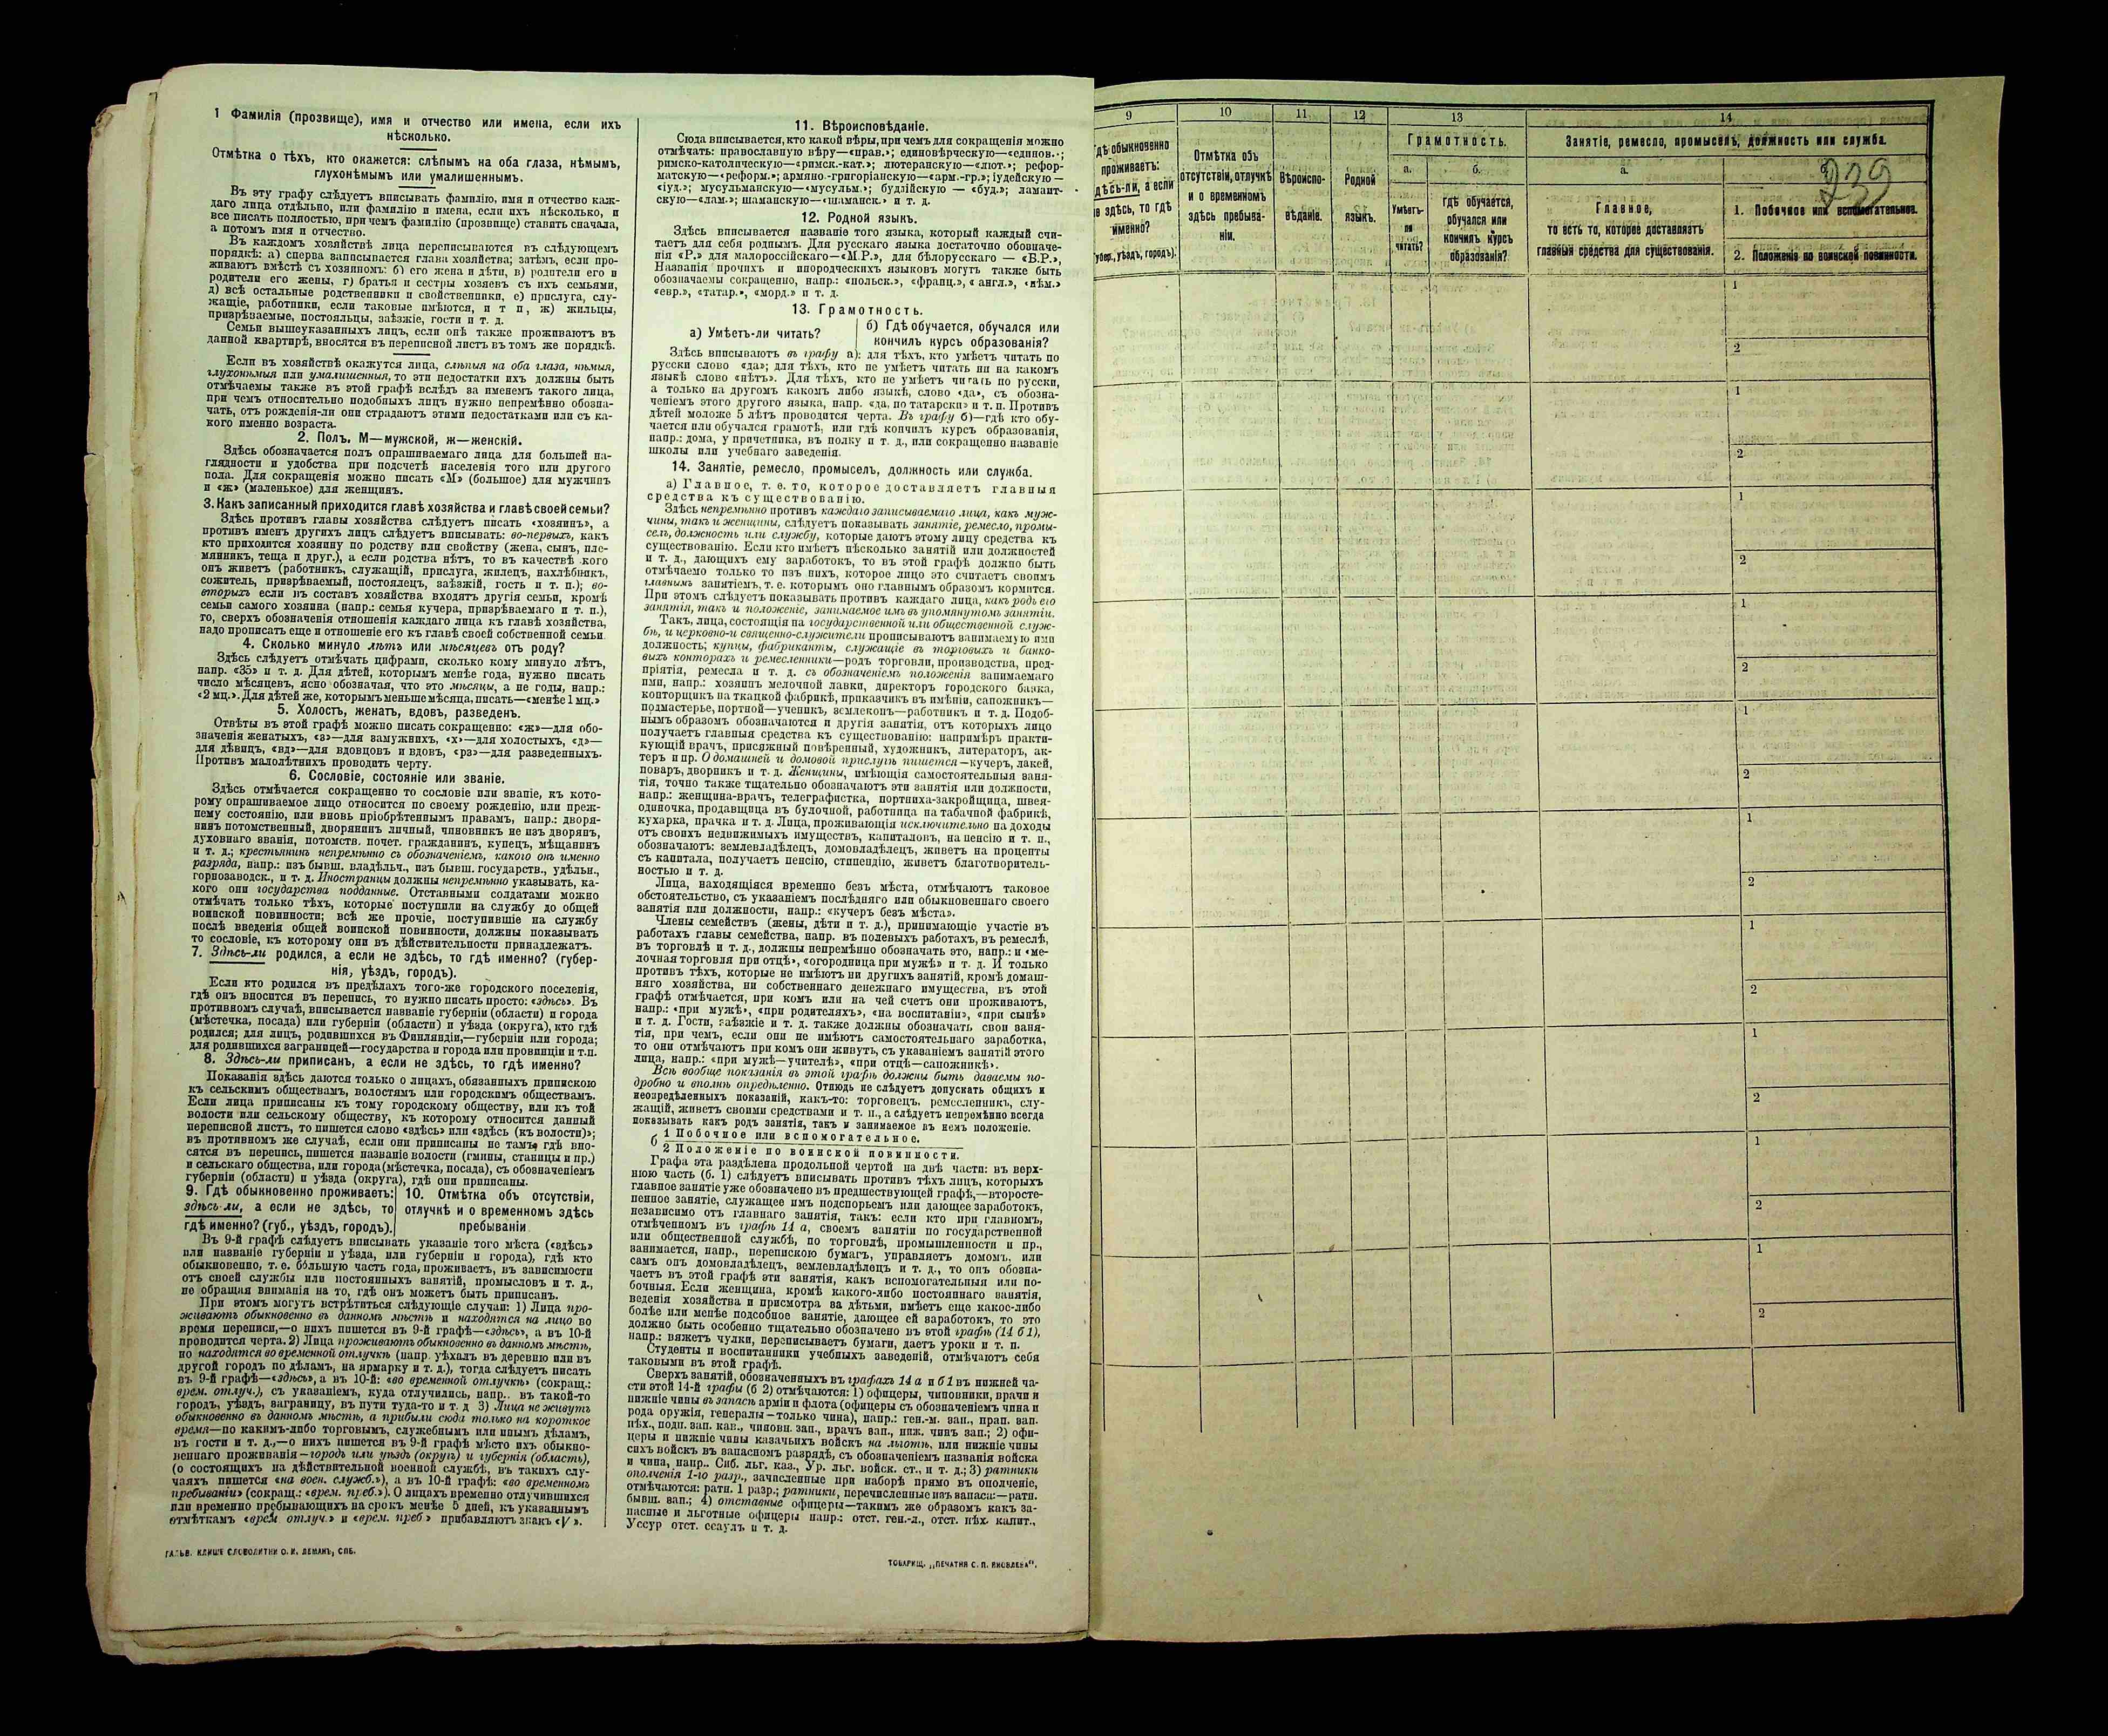 1 Фамилія (прозвище), имя и отчество или имена, если ихъ
нѣсколько.
Отмѣтка о тѣхъ, кто окажется: слѣпымъ на оба глаза, нѣмымъ,
глухонѣмымъ или умалишеннымъ.
Въ эту графу слѣдуетъ вписывать фамилію, имя и отчество каж-
даго лица отдѣльно, или фамилію и имена, если ихъ нѣсколько, и
все писать полностью, при чемъ фамилію (прозвище) ставить сначала,
а потомъ имя и отчество.
Въ каждомъ хозяйствѣ лица переписываются въ слѣдующемъ
порядкѣ: а) сперва записывается глава хозяйства; затѣмъ, если про-
живаютъ вмѣстѣ съ хозяиномъ: б) его жена и дѣти, в) родители его и
родители его жены, г) братья и сестры хозяевъ съ ихъ семьями,
д) всѣ остальные родственники и свойственники, е) прислуга, слу-
жащіе, работники, если таковые имѣются, и т п, ж) жильцы,
призрѣваемые, постояльцы, заѣзжіе, гости и т. д.
Семьи вышеуказанныхъ лицъ, если онѣ также проживаютъ въ
данной квартирѣ, вносятся въ переписной листъ въ томъ же порядкѣ.
Если въ хозяйствѣ окажутся лица, слѣпыя на оба глаза, нѣмыя,
глухонѣмыя или умалишенныя, то эти недостатки ихъ должны быть
отмѣчаемы также въ этой графѣ вслѣдъ за именемъ такого лица,
при чемъ относительно подобныхъ лицъ нужно непремѣнно обозна-
чать, отъ рожденія-ли они страдаютъ этими недостатками или съ ка-
кого именно возраста.
2. Полъ. М—мужской, ж—женскій.
Здѣсь обозначается полъ опрашиваемаго лица для большей на-
глядности и удобства при подсчетѣ населенія того или другого
пола. Для сокращенія можно писать «М» (большое) для мужчинъ
и «ж» (маленькое) для женщинъ.
3. Какъ записанный приходится главѣ хозяйства и главѣ своей семьи?
Здѣсь противъ главы хозяйства слѣдуетъ писать «хозяинъ», а
противъ именъ другихъ лицъ слѣдуетъ вписывать: во-первыхъ, какъ
кто приходится хозяину по родству или свойству (жена, сынъ, пле-
мянникъ, теща и друг.), а если родства нѣтъ, то въ качествѣ кого
онъ живетъ (работникъ, служащій, прислуга, жилецъ, нахлѣбникъ,
сожитель, призрѣваемый, постоялецъ, заѣзжій, гость и т. п.); во-
вторыхъ если въ составъ хозяйства входятъ другія семьи, кромѣ
семьи самого хозяина (напр.: семья кучера, призрѣваемаго и т. п.),
то, сверхъ обозначенія отношенія каждаго лица къ главѣ хозяйства,
надо прописать еще и отношеніе его къ главѣ своей собственной семьи
4. Сколько минуло лѣтъ или мѣсяцевъ отъ роду?
Здѣсь слѣдуетъ отмѣчать цифрами, сколько кому минуло лѣтъ,
напр. «35» и т. д. Для дѣтей, которымъ менѣе года, нужно писать
число мѣсяцевъ, ясно обозначая, что это мѣсяцы, а не годы, напр.:
«2 мц.». Для дѣтей же, которымъ меньше мѣсяца, писать—«менѣе 1 мц.»
5. Холостъ, женатъ, вдовъ, разведенъ.
Отвѣты въ этой графѣ можно писать сокращенно: «ж»—для обо-
значенія женатыхъ, «з»—для замужнихъ, «х»—для холостыхъ, «д»—
для дѣвицъ, «вд»—для вдовцовъ и вдовъ, «рз»—для разведенныхъ.
Противъ малолѣтнихъ проводить черту.
6. Сословіе, состояніе или званіе.
Здѣсь отмѣчается сокращенно то сословіе или званіе, къ кото-
рому опрашиваемое лицо относится по своему рожденію, или преж-
нему состоянію, или вновь пріобрѣтеннымъ правамъ, напр.: дворя-
нинъ потомственный, дворянинъ личный, чиновникъ не изъ дворянъ,
духовнаго званія, потомств. почет. гражданинъ, купецъ, мѣщанинъ
и т. д.; крестьянинъ непремѣнно съ обозначеніемъ, какого онъ именно
разряда, напр.: изъ бывш. владѣльч., изъ бывш. государств., удѣльн.,
горнозаводск., и т. д. Иностранцы должны непремѣнно указывать, ка-
кого они государства подданные. Отставными солдатами можно
отмѣчать только тѣхъ, которые поступили на службу до общей
воинской повинности; всѣ же прочіе, поступившіе на службу
послѣ введенія общей воинской повинности, должны показывать
то сословіе, къ которому они въ дѣйствительности принадлежатъ.
7. Здѣсь-ли родился, а если не здѣсь, то гдѣ именно? (губер-
нія, уѣздъ, городъ).
Если кто родился въ предѣлахъ того-же городского поселенія,
гдѣ онъ вносится въ перепись, то нужно писать просто: «здѣсь». Въ
противномъ случаѣ, вписывается названіе губерніи (области) и города
(мѣстечка, посада) или губерніи (области) и уѣзда (округа), кто гдѣ
родился; для лицъ, родившихся въ Финляндіи,—губерніи или города;
для родившихся заграницей—государства и города или провинціи и т.п.
8. Здѣсь-ли приписанъ, а если не здѣсь, то гдѣ именно?
Показанія здѣсь даются только о лицахъ, обязанныхъ припискою
къ сельскимъ обществамъ, волостямъ или городскимъ обществамъ.
Если лица приписаны къ тому городскому обществу, или къ той
волости или сельскому обществу, къ которому относится данный
переписной листъ, то пишется слово «здѣсь» или «здѣсь (къ волости)»;
въ противномъ же случаѣ, если они приписаны не тамъ, гдѣ вно-
сятся въ перепись, пишется названіе волости (гмины, станицы и пр.)
и сельскаго общества, или города (мѣстечка, посада), съ обозначеніемъ
губерніи (области) и уѣзда (округа), гдѣ они приписаны.
9. Гдѣ обыкновенно проживаетъ: здѣсь-ли, а если не здѣсь, то гдѣ именно? (губ., уѣздъ, городъ).
10. Отмѣтка объ отсутствіи, отлучкѣ и о временномъ здѣсь пребываніи
Въ 9-й графѣ слѣдуетъ вписывать указаніе того мѣста («здѣсь»
или названіе губерніи и уѣзда, или губерніи и города), гдѣ кто
обыкновенно, т. е. большую часть года, проживаетъ, въ зависимости
отъ своей службы или постоянныхъ занятій, промысловъ и т. д.,
не обращая вниманія на то, гдѣ онъ можетъ быть приписанъ.
При этомъ могутъ встрѣтиться слѣдующіе случаи: 1) Лица про-
живаютъ обыкновенно въ данномъ мѣстѣ и находятся на лицо во
время переписи,—о нихъ пишется въ 9-й графѣ—«здѣсь», а въ 10-й
проводится черта. 2) Лица проживаютъ обыкновенно въ данномъ мѣстѣ,
но находятся во временной отлучкѣ (напр. уѣхалъ въ деревню или въ
другой городъ по дѣламъ, на ярмарку и т. д.), тогда слѣдуетъ писать
въ 9-й графѣ—«здѣсь», а въ 10-й: «во временной отлучкѣ» (сокращ.:
врем. отлуч.), съ указаніемъ, куда отлучились, напр.. въ такой-то
городъ, уѣздъ, заграницу, въ пути туда-то и т. д 3) Лица не живутъ
обыкновенно въ данномъ мѣстѣ, а прибыли сюда только на короткое
время—по какимъ-либо торговымъ, служебнымъ или инымъ дѣламъ,
въ гости и т. д.,—о нихъ пишется въ 9-й графѣ мѣсто ихъ обыкно-
веннаго проживанія—городъ или уѣздъ (округъ) и губернія (область),
(о состоящихъ на дѣйствительной военной службѣ, въ такихъ слу-
чаяхъ пишется «на воен. служб.»), а въ 10-й графѣ: «во временномъ
пребываніи» (сокращ.: «врем. преб.»). О лицахъ временно отлучившихся
или временно пребывающихъ на срокъ менѣе 5 дней, къ указаннымъ
отмѣткамъ «врем. отлуч.» и «врем. преб» прибавляютъ знакъ «V».
ГАЛЬВ. КЛИШЕ СЛОВОЛИТНИ О. И. ЛЕМАНЪ, СПБ.
11. Вѣроисповѣданіе.
Сюда вписывается, кто какой вѣры, при чемъ для сокращенія можно
отмѣчать: православную вѣру—«прав.»; единовѣрческую—«единов.»;
римско-католическую—«римск.-кат.»; лютеранскую—«лют.»; рефор-
матскую—«реформ.»; армяно-григоріанскую—«арм.-гр.»; іудейскую—
«іуд.»; мусульманскую—«мусульм.»; буддійскую — «буд.»; ламаит-
скую—«лам.»; шаманскую—«шаманск.» и т. д.
12. Родной языкъ.
Здѣсь вписывается названіе того языка, который каждый счи-
таетъ для себя роднымъ. Для русскаго языка достаточно обозначе-
нія «Р.» для малороссійскаго—«М.Р.», для бѣлорусскаго — «Б.Р.»,
Названія прочихъ и инородческихъ языковъ могутъ также быть
обозначаемы сокращенно, напр.: «польск.», «франц.», «англ.», «нѣм.»
«евр.», «татар.», «морд.» и т. д.
13. Грамотность.
а) Умѣетъ-ли читать?
б) Гдѣ обучается, обучался или
кончилъ курсъ образованія?
Здѣсь вписываютъ въ графу а): для тѣхъ, кто умѣетъ читать по
русски слово «да»; для тѣхъ, кто не умѣетъ читать ни на какомъ
языкѣ слово «нѣтъ». Для тѣхъ, кто не умѣетъ читать по русски,
а только на другомъ какомъ либо языкѣ, слово «да», съ обозна-
ченіемъ этого другого языка, напр. «да, по татарски» и т. п. Противъ
дѣтей моложе 5 лѣтъ проводится черта. Въ графу б)—гдѣ кто обу-
чается или обучался грамотѣ, или гдѣ кончилъ курсъ образованія,
напр.: дома, у причетника, въ полку и т. д., или сокращенно названіе
школы или учебнаго заведенія.
14. Занятіе, ремесло, промыселъ, должность или служба.
а) Главное, т. е. то, которое доставляетъ главныя
средства къ существованію.
Здѣсь непремѣнно противъ каждаго записываемаго лица, какъ муж-
чины, такъ и женщины, слѣдуетъ показывать занятіе, ремесло, промы-
селъ, должность или службу, которые даютъ этому лицу средства къ
существованію. Если кто имѣетъ нѣсколько занятій или должностей
и т. д., дающихъ ему заработокъ, то въ этой графѣ должно быть
отмѣчаемо только то изъ нихъ, которое лицо это считаетъ своимъ
главнымъ занятіемъ, т. е. которымъ оно главнымъ образомъ кормится.
При этомъ слѣдуетъ показывать противъ каждаго лица, какъ родъ его
занятія, такъ и положеніе, занимаемое имъ въ упомянутомъ занятіи.
Такъ, лица, состоящія на государственной или общественной служ-
бѣ, и церковно-и священно-служители прописываютъ занимаемую ими
должность; купцы, фабриканты, служащіе въ торговыхъ и банко-
выхъ конторахъ и ремесленники—родъ торговли, производства, пред-
пріятія, ремесла и т. д. съ обозначеніемъ положенія занимаемаго
ими, напр.: хозяинъ мелочной лавки, директоръ городского банка,
конторщикъ на ткацкой фабрикѣ, приказчикъ въ имѣніи, сапожникъ—
подмастерье, портной—ученикъ, землекопъ—работникъ и т. д. Подоб-
нымъ образомъ обозначаются и другія занятія, отъ которыхъ лицо
получаетъ главныя средства къ существованію: напримѣръ практи-
кующій врачъ, присяжный повѣренный, художникъ, литераторъ, ак-
теръ и пр. О домашней и домовой прислугѣ пишется—кучеръ, лакей,
поваръ, дворникъ и т. д. Женщины, имѣющія самостоятельныя заня-
тія, точно также тщательно обозначаютъ эти занятія или должности,
напр.: женщина-врачъ, телеграфистка, портниха-закройщица, швея-
одиночка, продавщица въ булочной, работница на табачной фабрикѣ,
кухарка, прачка и т. д. Лица, проживающія исключительно на доходы
отъ своихъ недвижимыхъ имуществъ, капиталовъ, на пенсію и т. п.,
обозначаютъ: землевладѣлецъ, домовладѣлецъ, живетъ на проценты
съ капитала, получаетъ пенсію, стипендію, живетъ благотворитель-
ностью и т. д.
Лица, находящіяся временно безъ мѣста, отмѣчаютъ таковое
обстоятельство, съ указаніемъ послѣдняго или обыкновеннаго своего
занятія или должности, напр.: «кучеръ безъ мѣста».
Члены семействъ (жены, дѣти и т. д.), принимающіе участіе въ
работахъ главы семейства, напр. въ полевыхъ работахъ, въ ремеслѣ,
въ торговлѣ и т. д., должны непремѣнно обозначать это, напр.: и «ме-
лочная торговля при отцѣ», «огородница при мужѣ» и т. д. И только
противъ тѣхъ, которые не имѣютъ ни другихъ занятій, кромѣ домаш-
няго хозяйства, ни собственнаго денежнаго имущества, въ этой
графѣ отмѣчается, при комъ или на чей счетъ они проживаютъ,
напр.: «при мужѣ», «при родителяхъ», «на воспитаніи», «при сынѣ»
и т. д. Гости, заѣзжіе и т. д. также должны обозначать свои заня-
тія, при чемъ, если они не имѣютъ самостоятельнаго заработка,
то они отмѣчаютъ при комъ они живутъ, съ указаніемъ занятій этого
лица, напр.: «при мужѣ—учителѣ», «при отцѣ—сапожникѣ».
Всѣ вообще показанія въ этой графѣ должны быть даваемы по-
дробно и вполнѣ опредѣленно. Отнюдь не слѣдуетъ допускать общихъ и
неопредѣленныхъ показаній, какъ-то: торговецъ, ремесленникъ, слу-
жащій, живетъ своими средствами и т. п., а слѣдуетъ непремѣнно всегда
показывать какъ родъ занятія, такъ и занимаемое въ немъ положеніе.
б 1 Побочное или вспомогательное.
2 Положеніе по воинской повинности.
Графа эта раздѣлена продольной чертой на двѣ части: въ верх-
нюю часть (б. 1) слѣдуетъ вписывать противъ тѣхъ лицъ, которыхъ
главное занятіе уже обозначено въ предшествующей графѣ,—второсте-
пенное занятіе, служащее имъ подспорьемъ или дающее заработокъ,
независимо отъ главнаго занятія, такъ: если кто при главномъ,
отмѣченномъ въ графѣ 14 а, своемъ занятіи по государственной
или общественной службѣ, по торговлѣ, промышленности и пр.,
занимается, напр., перепискою бумагъ, управляетъ домомъ, или
самъ онъ домовладѣлецъ, землевладѣлецъ и т. д., то онъ обозна-
чаетъ въ этой графѣ эти занятія, какъ вспомогательныя или по-
бочныя. Если женщина, кромѣ какого-либо постояннаго занятія,
веденія хозяйства и присмотра за дѣтьми, имѣетъ еще какое-либо
болѣе или менѣе подсобное занятіе, дающее ей заработокъ, то это
должно быть особенно тщательно обозначено въ этой графѣ (14 б 1),
напр.: вяжетъ чулки, переписываетъ бумаги, даетъ уроки и т. п.
Студенты и воспитанники учебныхъ заведеній, отмѣчаютъ себя
таковыми въ этой графѣ.
Сверхъ занятій, обозначенныхъ въ графахъ 14 а и б 1 въ нижней ча-
сти этой 14-й графы (б 2) отмѣчаются: 1) офицеры, чиновники, врачи и
нижніе чины въ запасѣ арміи и флота (офицеры съ обозначеніемъ чина и
рода оружія, генералы—только чина), напр.: ген.-м. зап., прап. зап.
пѣх., подп. зап. кав., чиновн. зап., врачъ зап., ниж. чинъ зап.; 2) офи-
церы и нижніе чины казачьихъ войскъ на льготѣ, или нижніе чины
сихъ войскъ въ запасномъ разрядѣ, съ обозначеніемъ названія войска
и чина, напр.. Сиб. льг. каз., Ур. льг. войск. ст., и т. д.; 3) ратники
ополченія 1-го разр., зачисленные при наборѣ прямо въ ополченіе,
отмѣчаются: ратн. 1 разр.; ратники, перечисленные изъ запаса:—ратн.
бывш. зап.; 4) отставные офицеры—такимъ же образомъ какъ за-
пасные и льготные офицеры напр.: отст. ген.-л., отст. пѣх. капит.,
Уссур отст. есаулъ и т. д.
ТОВАРИЩ. „ПЕЧАТНЯ С. П. ЯКОВЛЕВА".
239
9
10
11
12
13
14
гдѣ обыкновенно
проживаетъ:
здѣсь-ли, а если
не здѣсь, то гдѣ
именно?
(губер., уѣздъ, городъ).
Отмѣтка объ
отсутствіи, отлучкѣ
и о временномъ
здѣсь пребыва-
ніи.
Вѣроиспо-
вѣданіе.
Родной
языкъ.
Грамотность.
а.
Умѣетъ-
ли
читать?
б.
гдѣ обучается,
обучался или
кончилъ курсъ
образованія?
Занятіе, ремесло, промыселъ, должность или служба.
а.
Главное,
то есть то, которое доставляетъ
главныя средства для существованія.
б.
1. Побочное или вспомогательное.
2. Положеніе по воинской повинности.
1
2
1
2
1
2
1
2
1
2
1
2
1
2
1
2
1
2
1
2